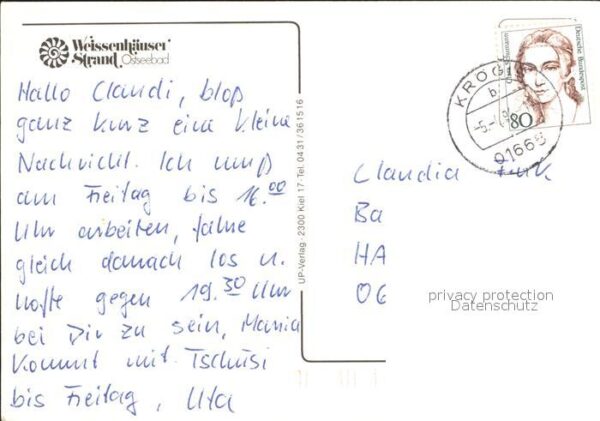 Weissenhäuser
Strand Ostseebad
Hallo Claudi, bloß
ganz kurz eine kleine
Nachricht. Ich muß
am Freitag bis 16.00
Uhr arbeiten, fahre
gleich danach los u.
hoffe gegen 19.30 Uhr
bei Dir zu sein, Maria
kommt mit. Tschüsi
bis Freitag, Uta
UP-Verlag · 2300 Kiel 17 · Tel. 04 31 / 36 15 16
Deutsche Bundespost
80
Claudia
Ba
HA
06
privacy protection
Datenschutz